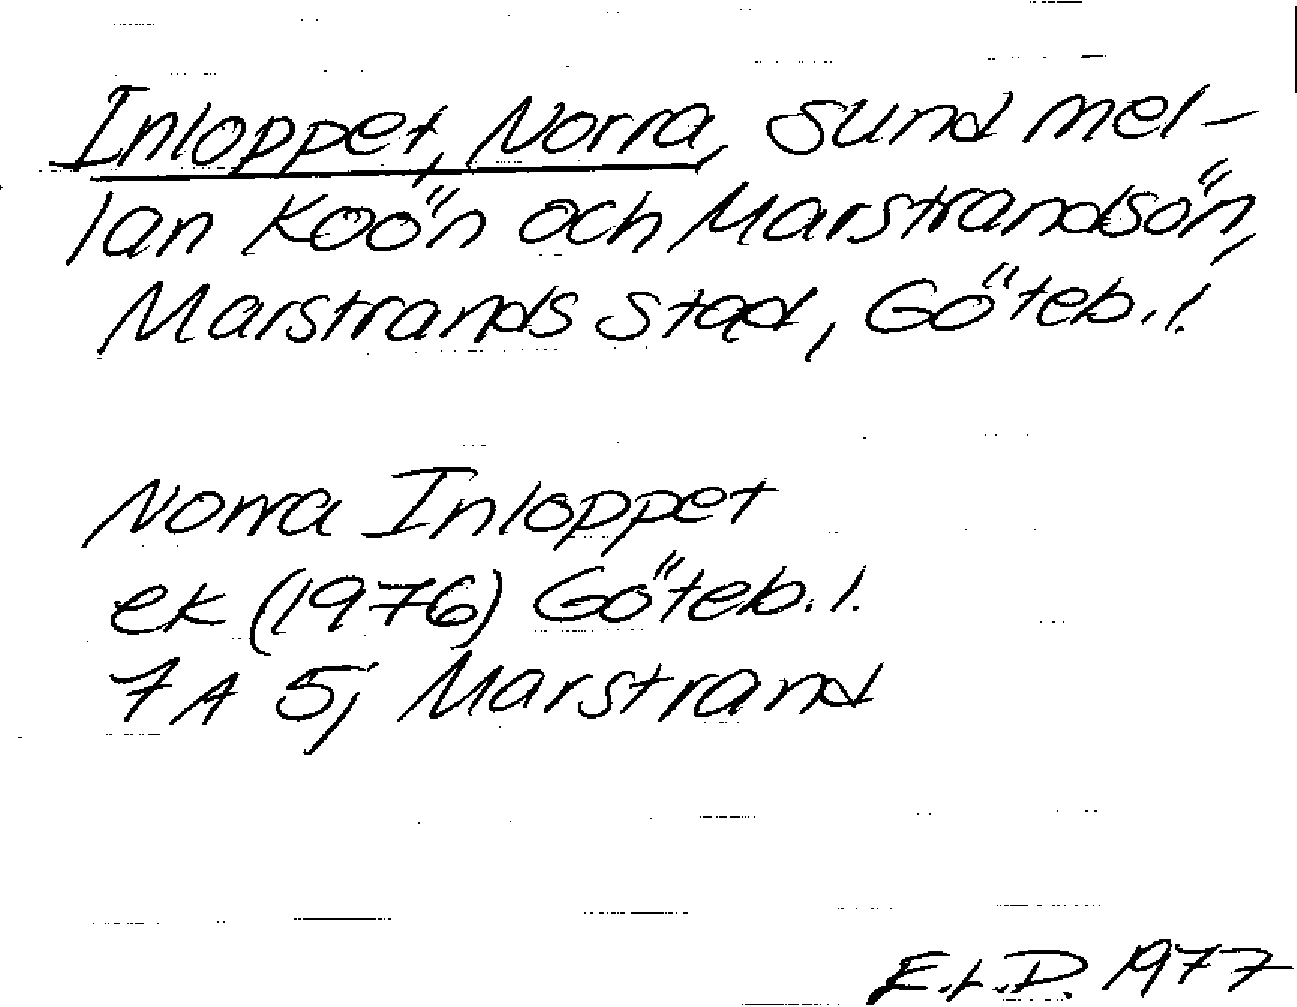 Inloppet, Norra, sund mel-
lan Koön och Marstrandsön,
Marstrands stad, Göteb. l.
Norra Inloppet
ek (1976) Göteb. l.
7A 5j Marstrand
E.L.D. 1977